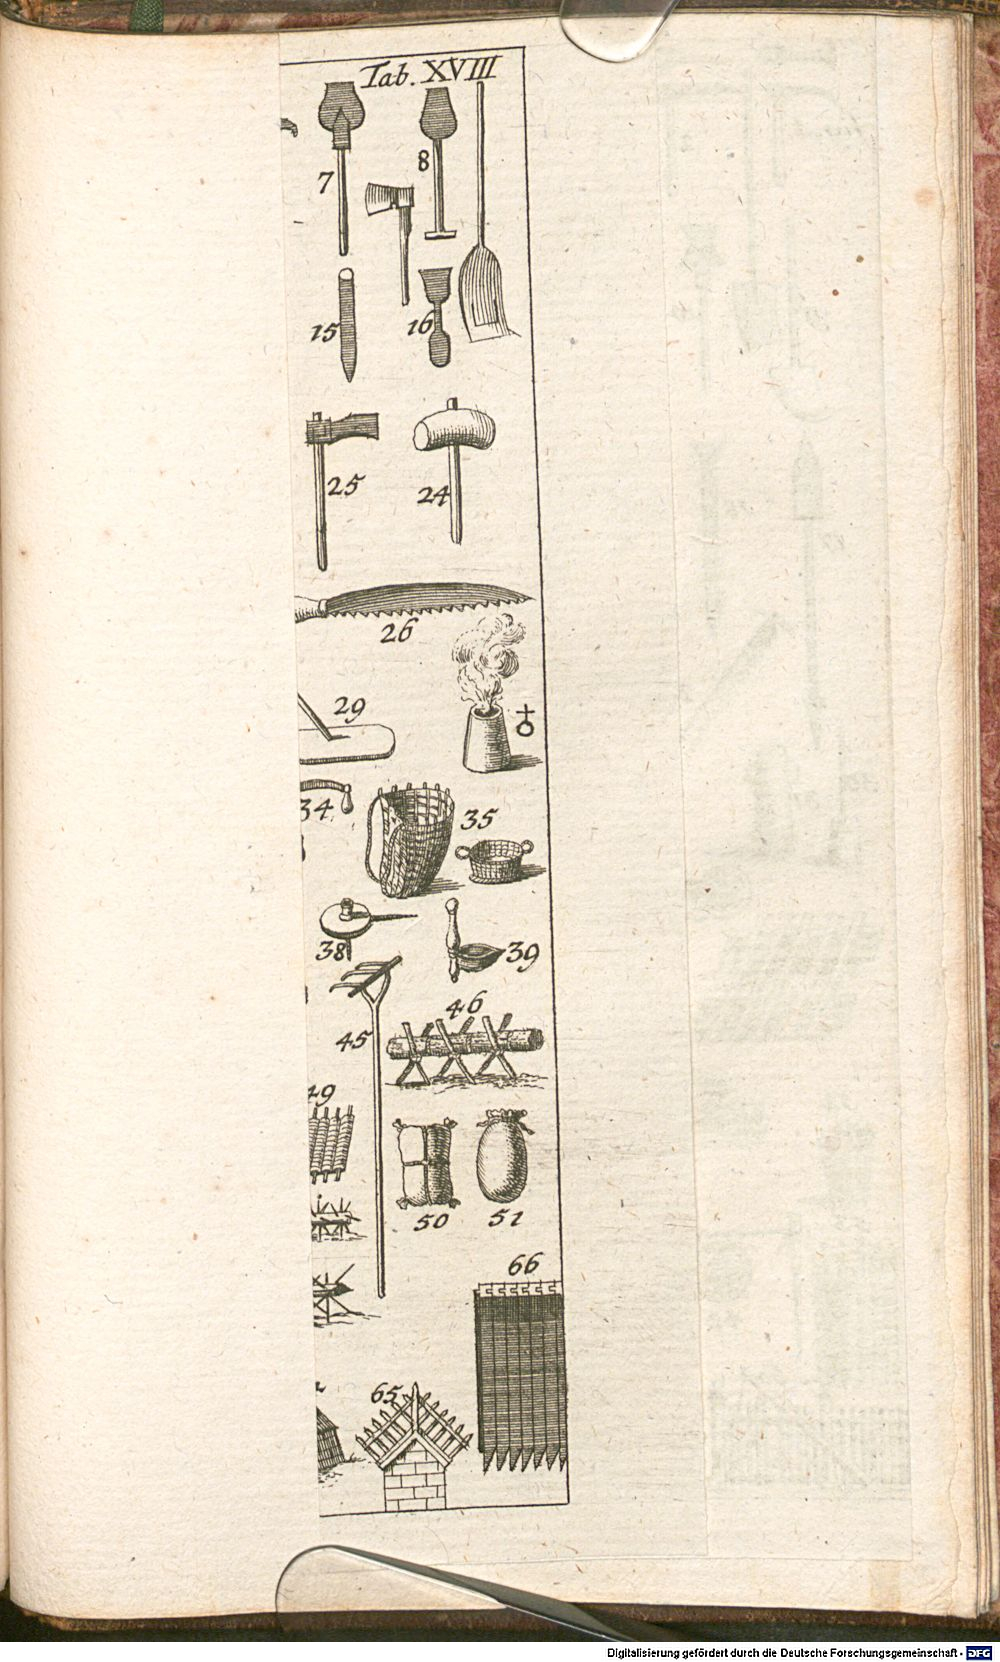 Tab. XVIII
7
8
15
16
25
24
26
29
♁
34
35
38
39
46
45
49
50
51
66
65
Digitalisierung gefördert durch die Deutsche Forschungsgemeinschaft - DFG